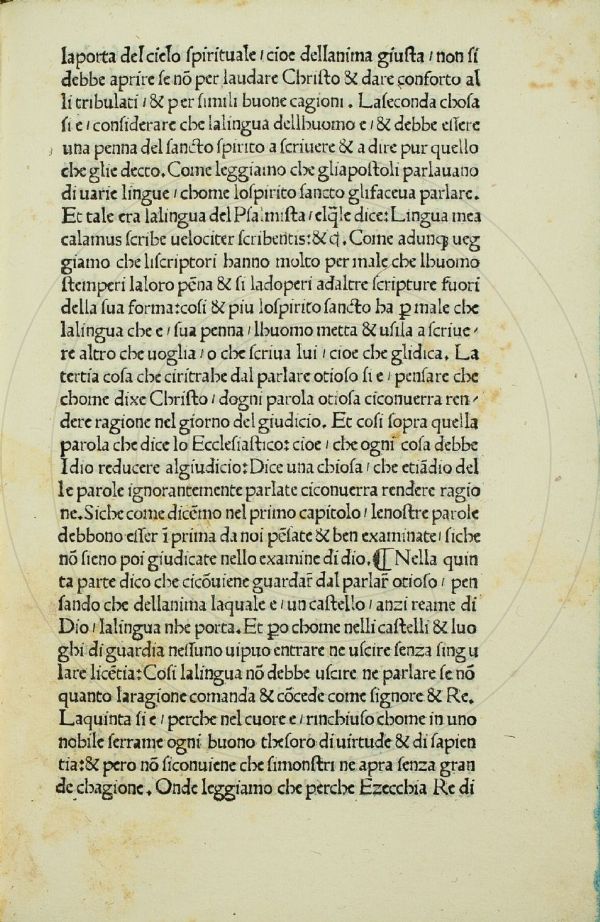 laporta del cielo spirituale / cioe dellanima giusta / non si
debbe aprire se nō per laudare Christo & dare conforto al
li tribulati / & per simili buone cagioni. Laseconda chosa
si e / considerare che lalingua dellhuomo e / & debbe essere
una penna del sancto spirito a scriuere & a dire pur quello
che glie decto. Come leggiamo che gliapostoli parlauano
di uarie lingue / chome lospirito sancto glifaceua parlare.
Et tale era lalingua del Psalmista / elq̄le dice: Lingua mea
calamus scribe uelociter scribentis: & q̄. Come adunqꝫ ueg
giamo che liscriptori hanno molto per male che lhuomo
stemperi laloro pēna & si ladoperi adaltre scripture fuori
della sua forma: cosi & piu lospirito sancto ha ꝑ male che
lalingua che e / sua penna / lhuomo metta & usila a scriue-
re altro che uoglia / o che scriua lui / cioe che glidica. La
tertia cosa che ciritrahe dal parlare otioso si e / pensare che
chome dixe Christo / dogni parola otiosa ciconuerra ren-
dere ragione nel giorno del giudicio. Et cosi sopra quella
parola che dice lo Ecclesiastico: cioe / che ogni cosa debbe
Idio reducere algiudicio: Dice una chiosa / che etiādio del
le parole ignorantemente parlate ciconuerra rendere ragio
ne. Siche come dicēmo nel primo capitolo / lenostre parole
debbono esser ī prima da noi pēsate & ben examinate / siche
nō sieno poi giudicate nello examine di dio. ¶ Nella quin
ta parte dico che cicōuiene guardar̄ dal parlar̄ otioso / pen
sando che dellanima laquale e / un castello / anzi reame di
Dio / lalingua nhe porta. Et ꝑo chome nelli castelli & luo
ghi di guardia nessuno uipuo entrare ne uscire senza singu
lare licētia: Cosi lalingua nō debbe uscire ne parlare se nō
quanto laragione comanda & cōcede come signore & Re.
Laquinta si e / perche nel cuore e / rinchiuso chome in uno
nobile serrame ogni buono thesoro di uirtude & di sapien
tia: & pero nō siconuiene che simonstri ne apra senza gran
de chagione. Onde leggiamo che perche Ezecchia Re di